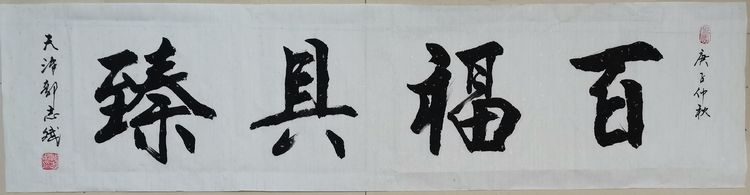 庚子仲秋
百福具臻
天津郭志斌